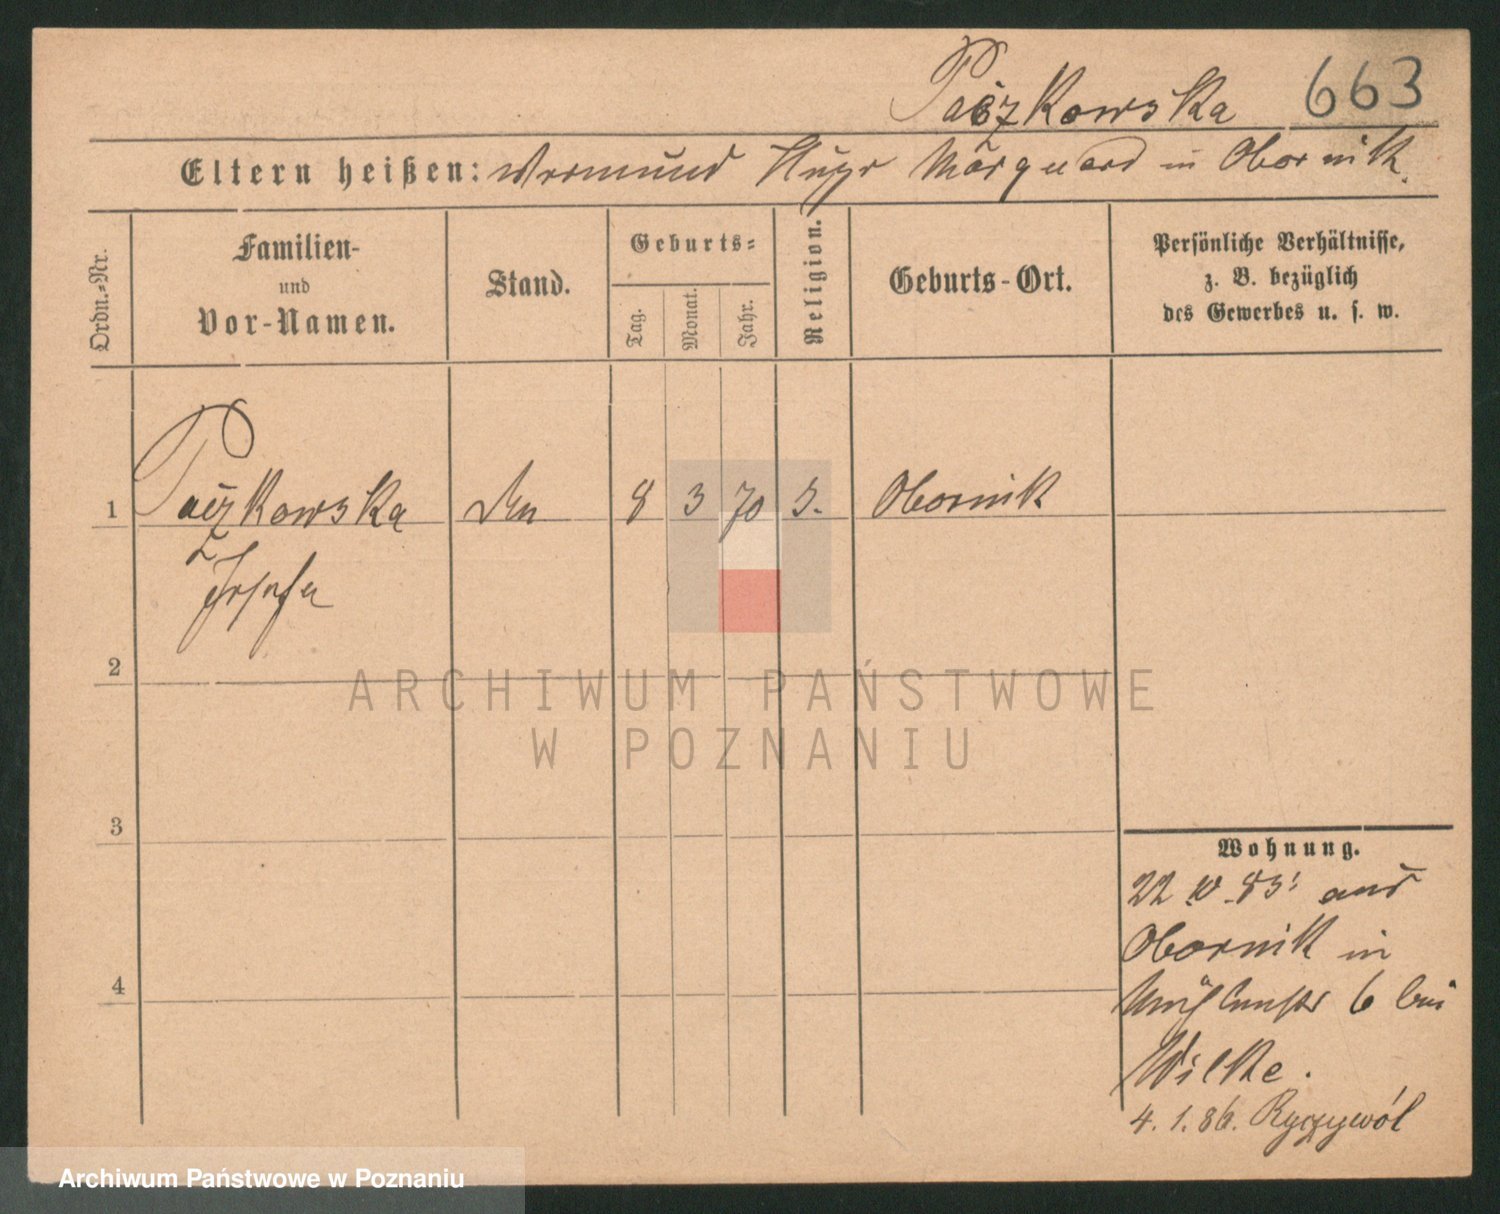 Paczkowska 663
Eltern heißen: Vormund Marquard in Obornik.
Ordn.-Nr.
Familien-
und
Vor-Namen.
Stand.
Geburts-
Tag.
Monat.
Jahr.
Religion.
Geburts-Ort.
Persönliche Verhältnisse,
z. B. bezüglich
des Gewerbes u. s. w.
1 Paczkowska 8 3 70 Obornik
Josefa
2
ARCHIWUM PAŃSTWOWE
W POZNANIU
3
Wohnung.
22 83 aus
Obornik in
6 bei
4
Wilke.
4. 1. 86. Ryczywół
Archiwum Państwowe w Poznaniu